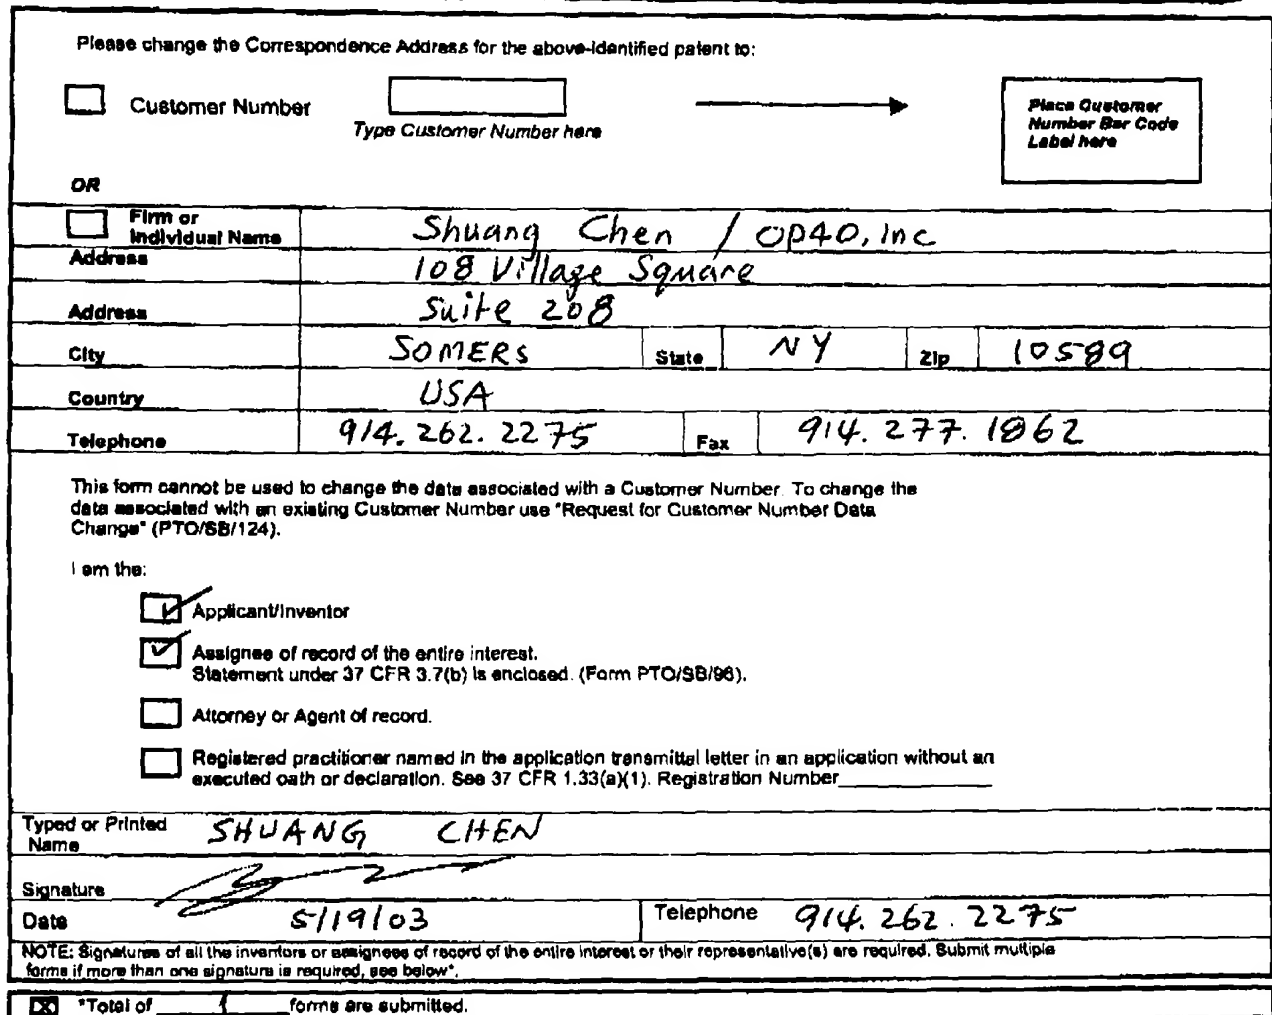 Please change the Correspondence Address for the above-identified patent to:
Customer Number
Type Customer Number here
Place Customer
Number Bar Code
Label here
OR
Firm or
Individual Name
Shuang Chen / OP40, Inc
Address 108 Village Square
Address Suite 208
City SOMERS State NY Zip 10589
Country USA
Telephone 914.262.2275 Fax 914.277.1862
This form cannot be used to change the data associated with a Customer Number. To change the
data associated with an existing Customer Number use "Request for Customer Number Data
Change" (PTO/SB/124).
I am the:
Applicant/Inventor
Assignee of record of the entire interest.
Statement under 37 CFR 3.7(b) is enclosed. (Form PTO/SB/96).
Attorney or Agent of record.
Registered practitioner named in the application transmittal letter in an application without an
executed oath or declaration. See 37 CFR 1.33(a)(1). Registration Number
Typed or Printed
Name
SHUANG CHEN
Signature
Date 5/19/03 Telephone 914.262.2275
NOTE: Signatures of all the inventors or assignees of record of the entire interest or their representative(s) are required. Submit multiple
forms if more than one signature is required, see below*.
*Total of 1 forms are submitted.